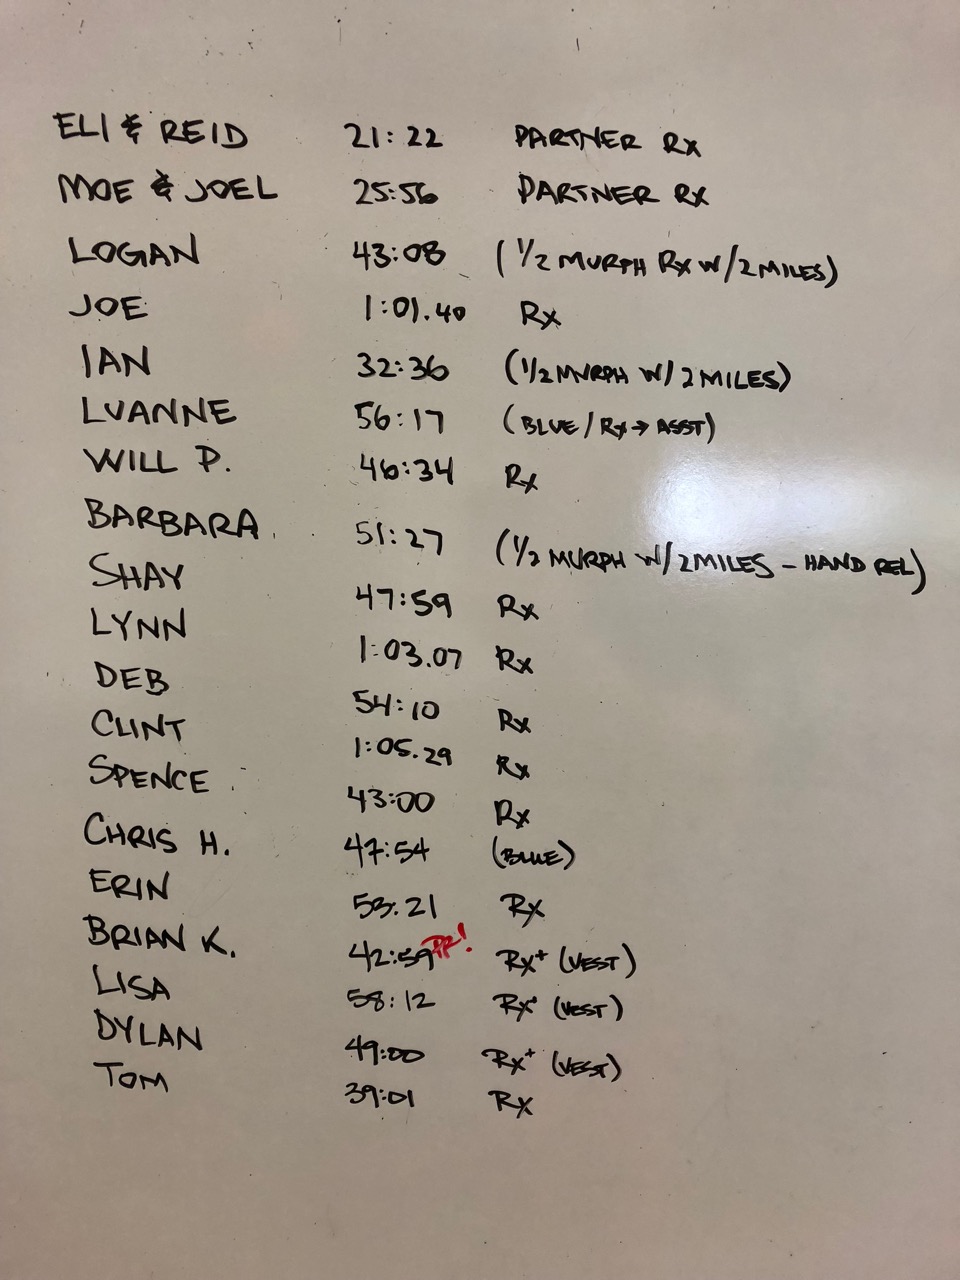 ELI & REID 21:22 PARTNER Rx
MOE & JOEL 25:56 PARTNER Rx
LOGAN 43:08 (1/2 MURPH Rx W/2 MILES)
JOE 1:01.40 Rx
IAN 32:36 (1/2 MURPH W/ 2 MILES)
LUANNE 56:17 (BLUE/Rx→ASST)
WILL P. 46:34 Rx
BARBARA 51:27 (1/2 MURPH W/2 MILES - HAND REL)
SHAY 47:59 Rx
LYNN 1:03.07 Rx
DEB 54:10 Rx
CLINT 1:05.29 Rx
SPENCE 43:00 Rx
CHRIS H. 47:54 (BLUE)
ERIN 53.21 Rx
BRIAN K. 42:59 PR! Rx+ (VEST)
LISA 58:12 Rx+ (VEST)
DYLAN 49:00 Rx+ (VEST)
TOM 39:01 Rx